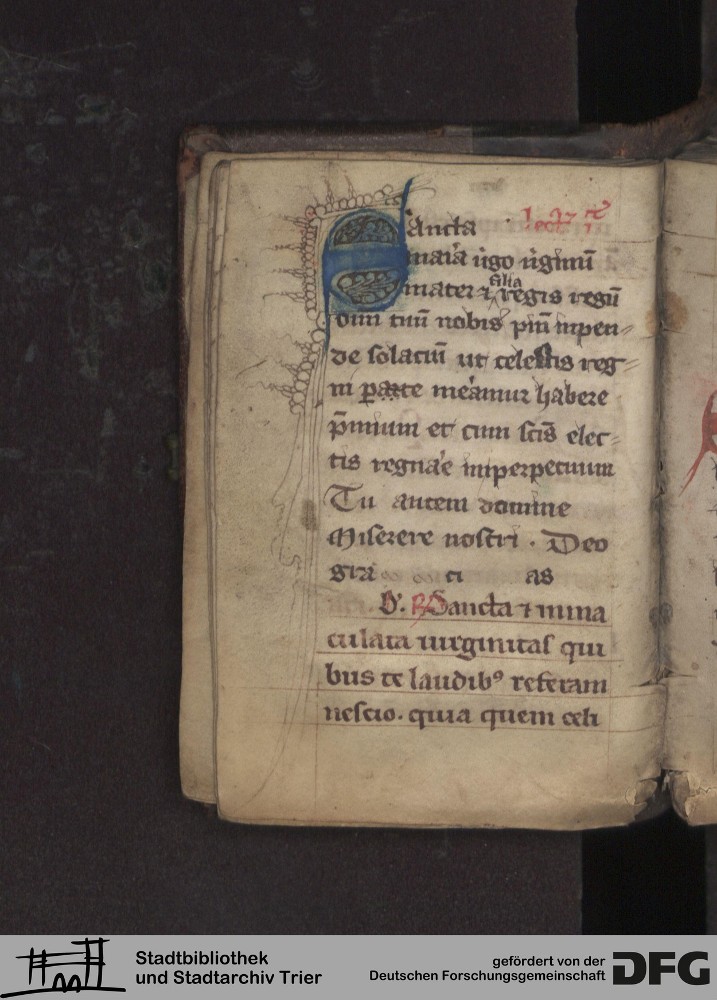 Sancta lectio
maria ugo uginū
mater ⁊ filia regis regū
oīm tuū nobis piū inpen-
de solaciū ut celestis reg-
ni parte meamur habere
p̄mium et cum scīs elec-
tis regnae inperpetuum
Tu autem domine
Miserere nostri . Deo
gra ci as
R Sancta ⁊ inma
culata uirginitas qui
bus te laudibꝰ referam
nescio. quia quem celi
Stadtbibliothek
und Stadtarchiv Trier
gefördert von der
Deutschen Forschungsgemeinschaft
DFG